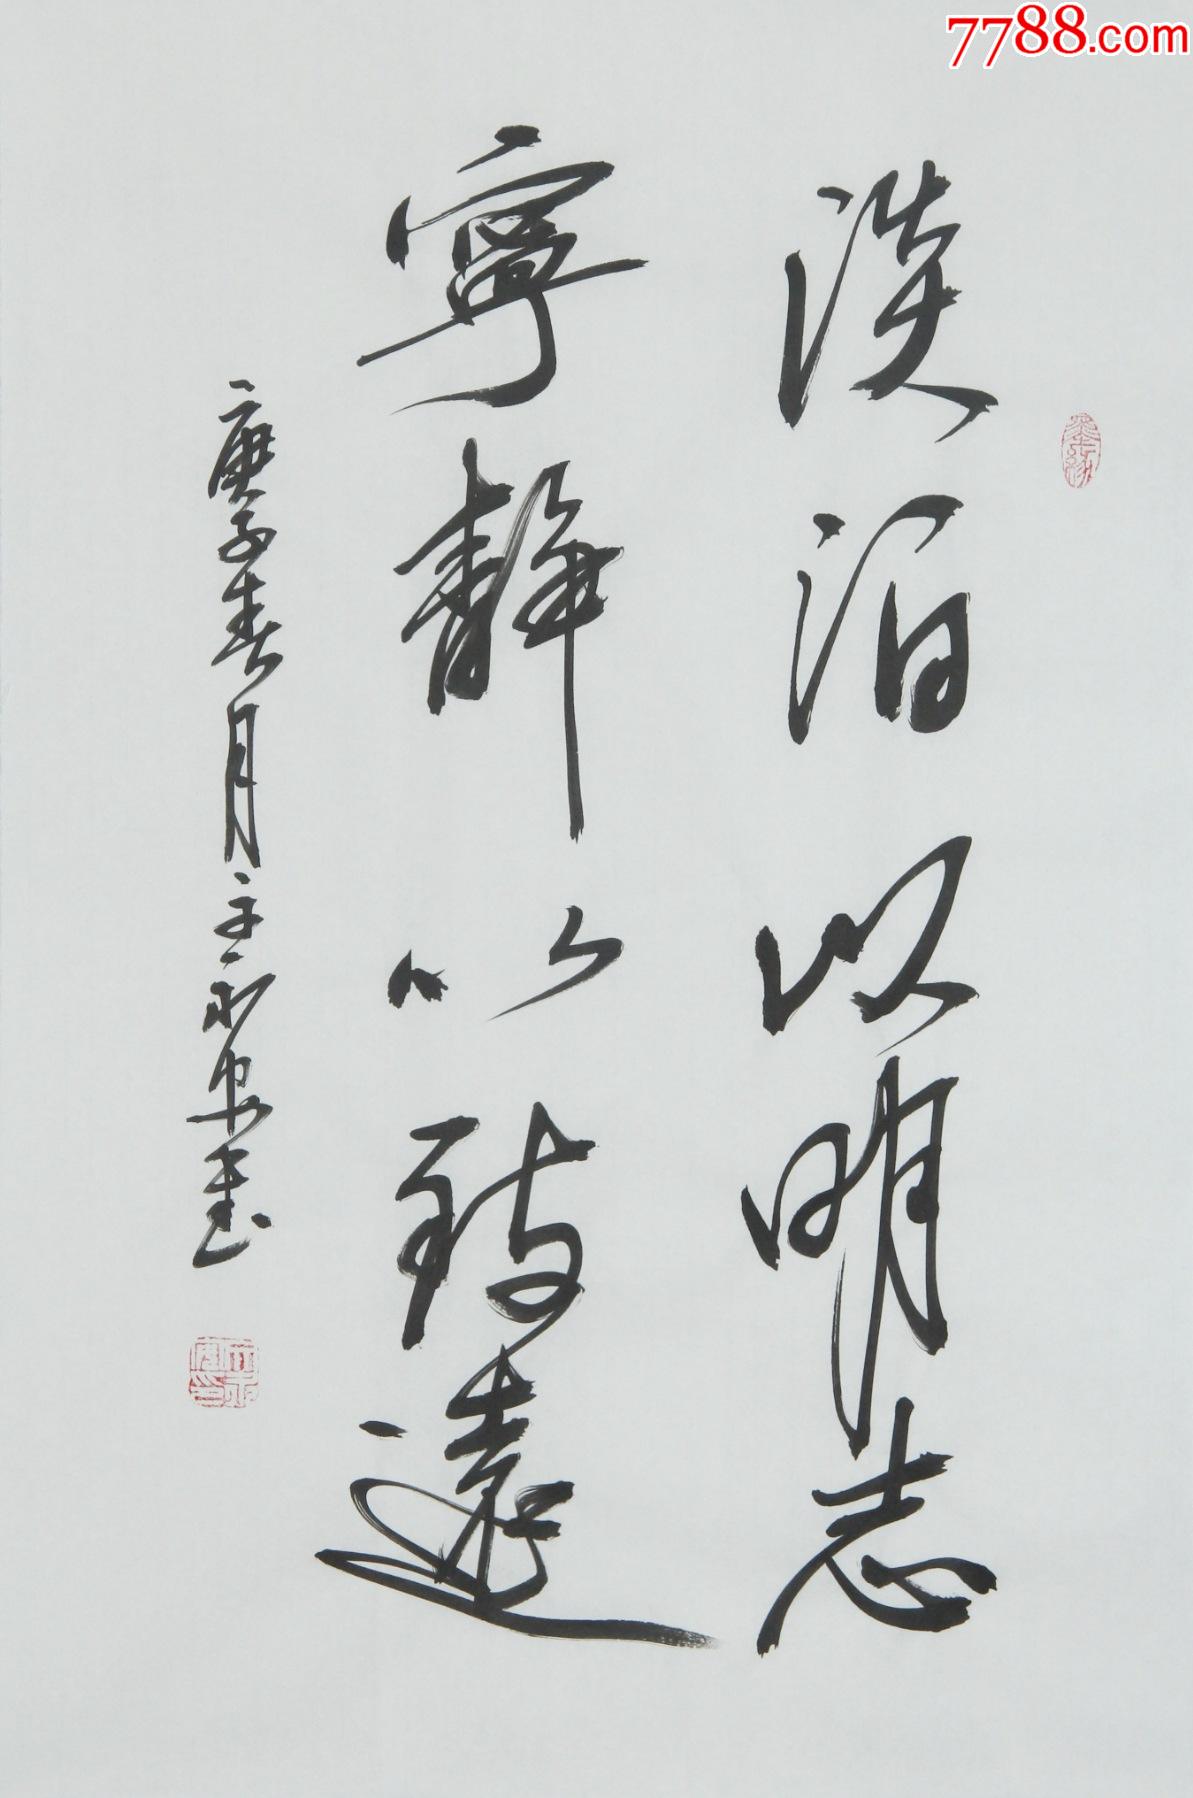 7788.com
淡泊以明志
寧靜以致遠
庚子春月王永安書